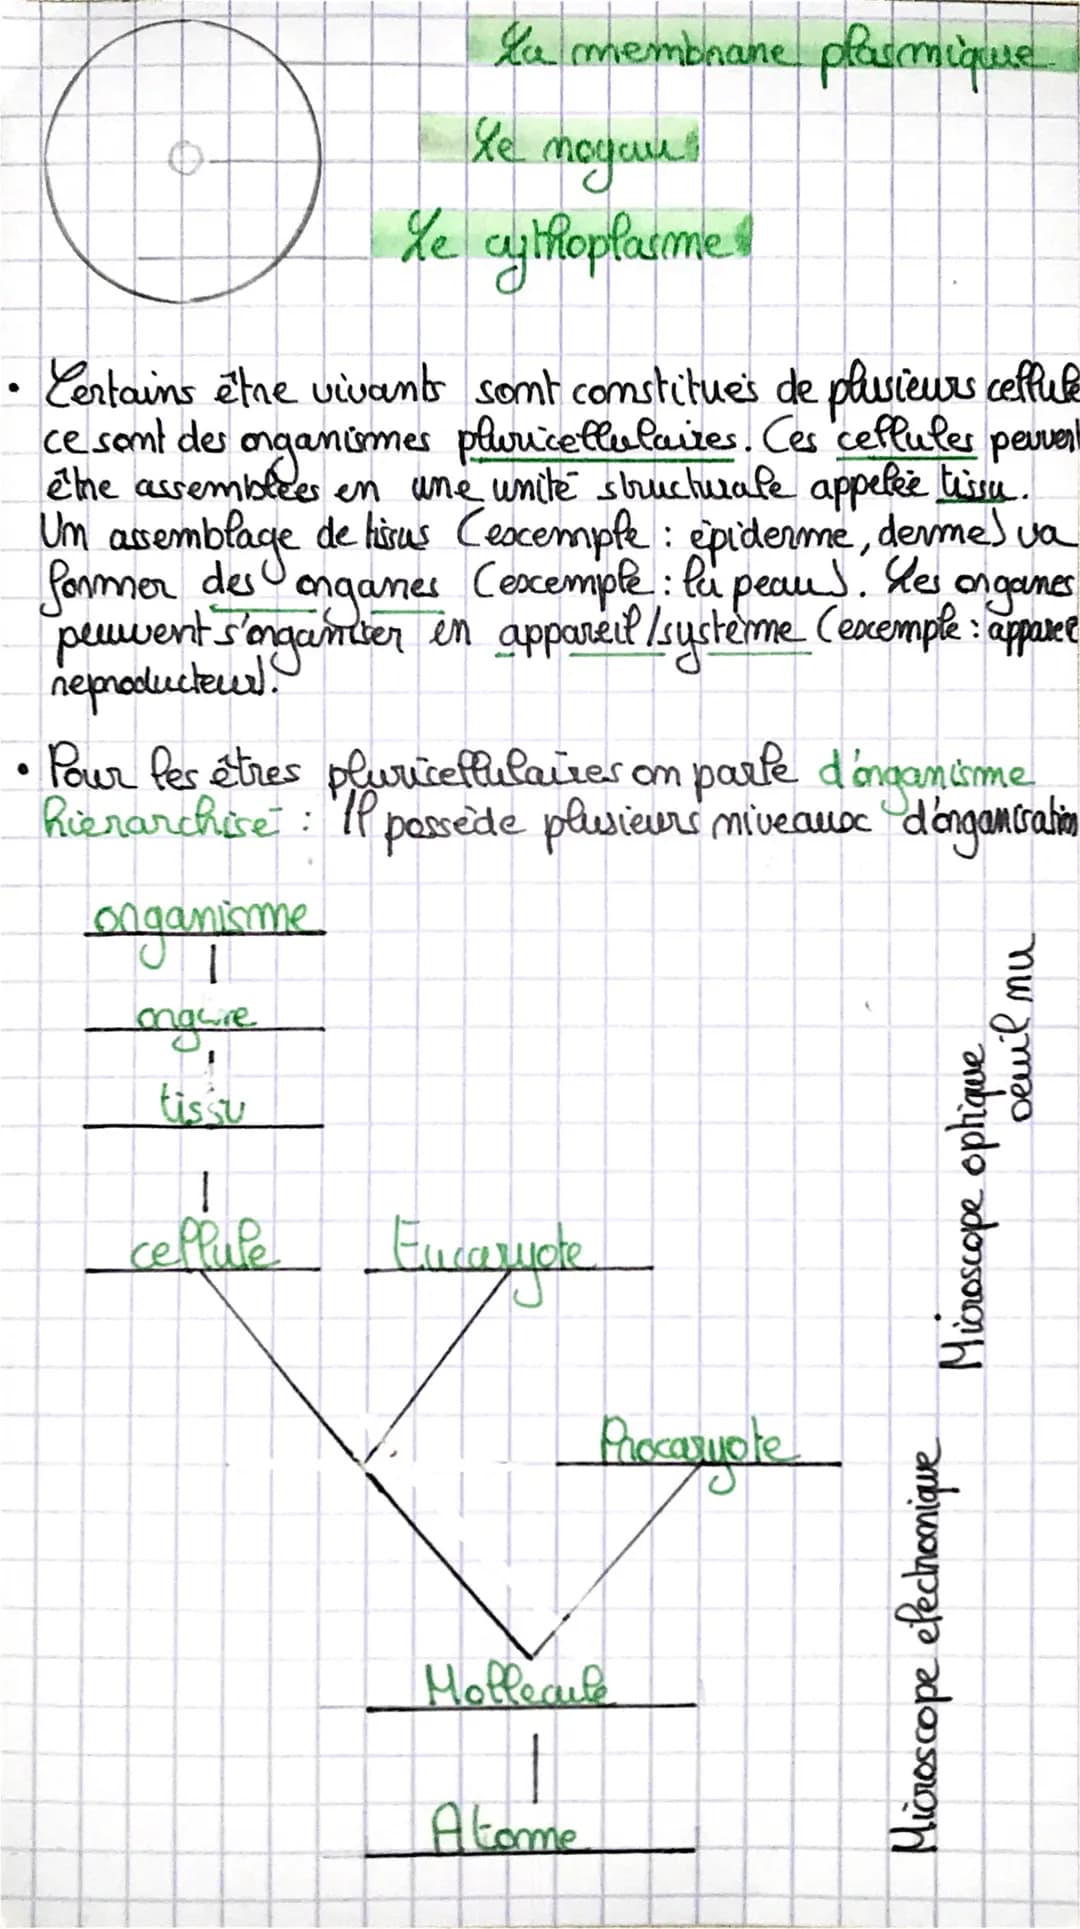 La membrane plasmique
Le noyau
Le cythoplasme
• Certains être vivants sont constitués de plusieurs cellule
ce sont des organismes pluricellulaires. Ces cellules peuvent
être assemblées en une unité structurale appelée tissu.
Un assemblage de tissus (exemple : épiderme, derme) va
former des organes (exemple : la peau). Les organes
peuvent s'organiser en appareil/système (exemple : appareil
reproducteur).
• Pour les êtres pluricellulaires on parle d'organisme
hierarchisé : Il possède plusieurs niveaux d'organisation
organisme
organe
tissu
cellule Eucaryote
Procaryote
Mollecule
Atome
oeuil nu
Microscope optique
Microscope électronique